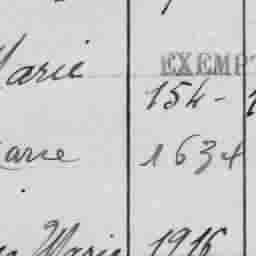 Marie EXEMPT
154-
Marie 1634
Marie 1916